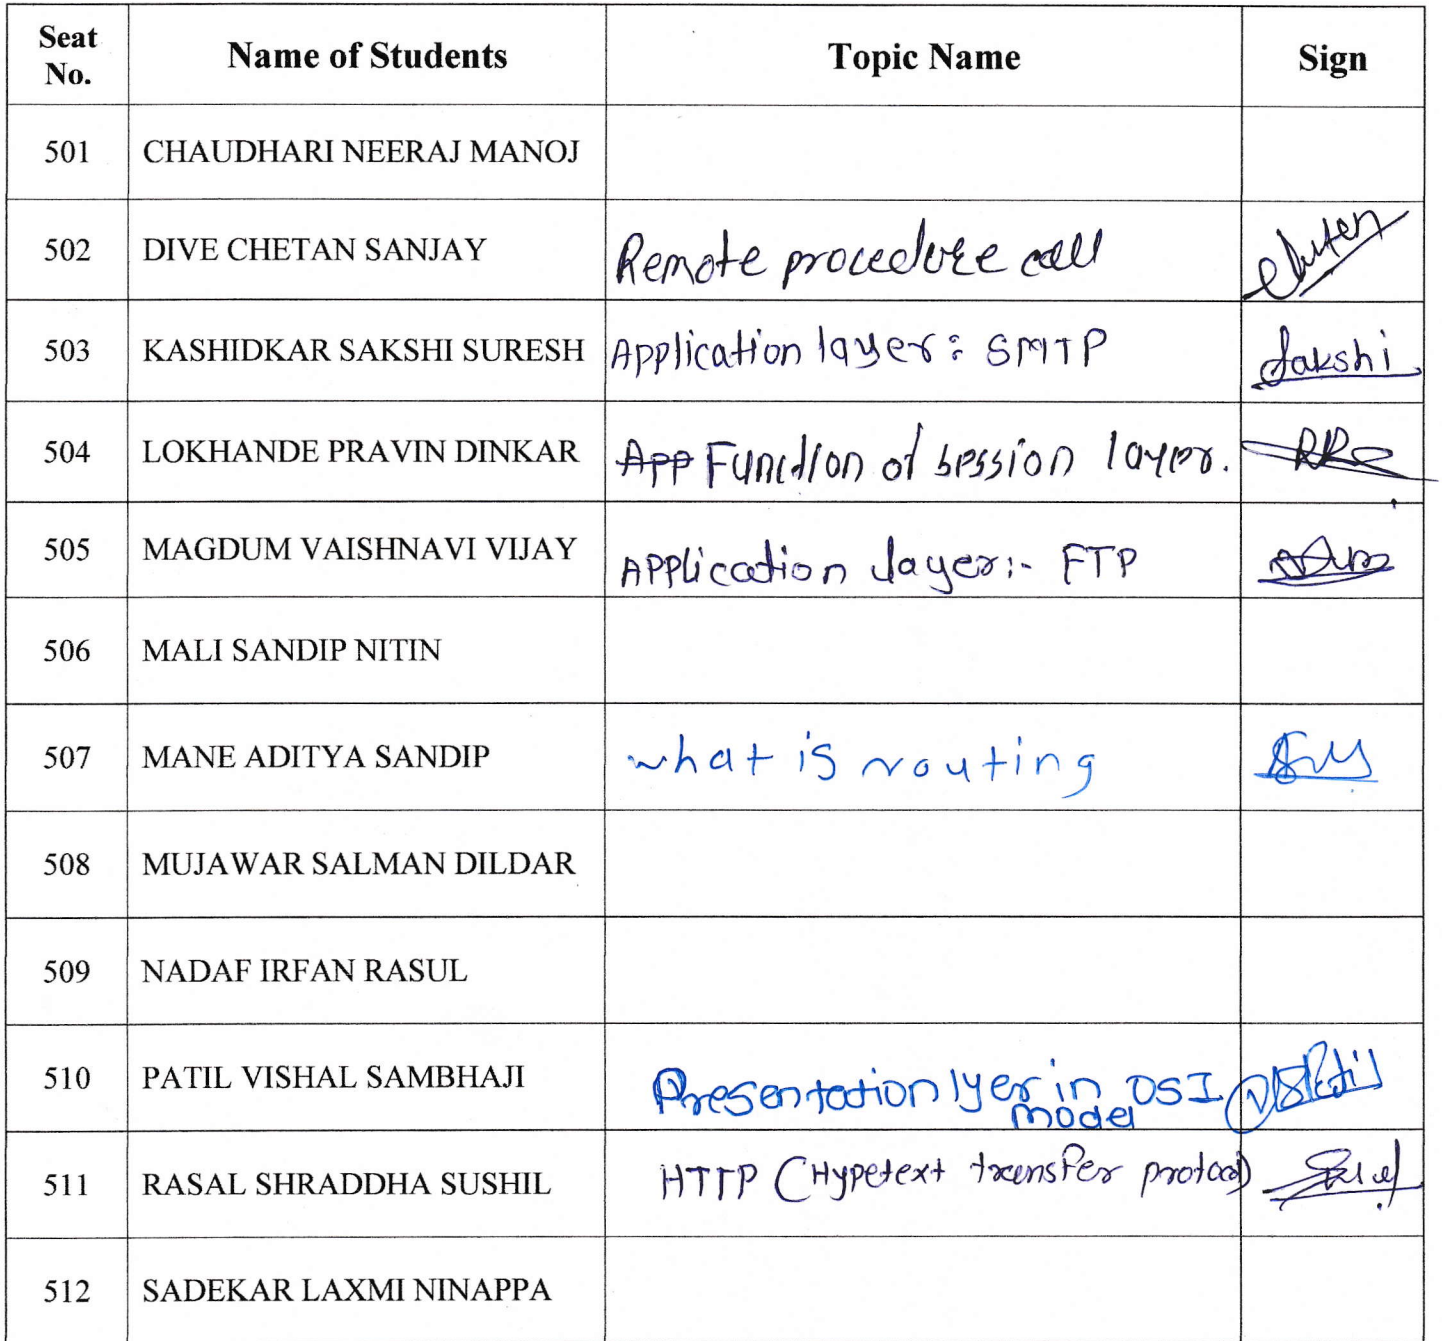 Seat No. Name of Students Topic Name Sign
501 CHAUDHARI NEERAJ MANOJ
502 DIVE CHETAN SANJAY Remote procedure call
503 KASHIDKAR SAKSHI SURESH Application layer : SMTP Sakshi
504 LOKHANDE PRAVIN DINKAR App Function of session layer.
505 MAGDUM VAISHNAVI VIJAY Application layer:- FTP
506 MALI SANDIP NITIN
507 MANE ADITYA SANDIP what is routing
508 MUJAWAR SALMAN DILDAR
509 NADAF IRFAN RASUL
510 PATIL VISHAL SAMBHAJI Presentation lyer in OSI
model
511 RASAL SHRADDHA SUSHIL HTTP (Hypetext transfer protocol)
512 SADEKAR LAXMI NINAPPA